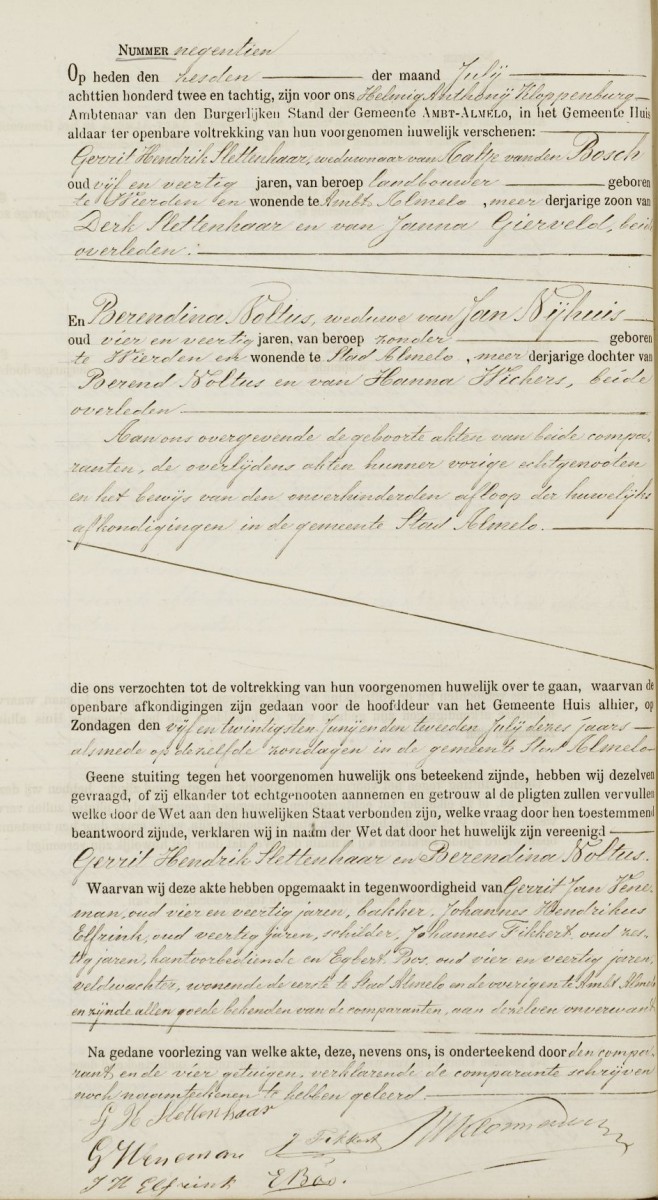 NUMMER negentien
Op heden den zesden der maand July
achttien honderd twee en tachtig, zijn voor ons Helmig Anthonij Kloppenburg
Ambtenaar van den Burgerlijken Stand der Gemeente AMBT-ALMELO, in het Gemeente Huis
aldaar ter openbare voltrekking van hun voorgenomen huwelijk verschenen:
Gerrit Hendrik Slettenhaar, weduwnaar van Aaltje van den Bosch
oud vijf en veertig jaren, van beroep landbouwer geboren
te Wierden en wonende te Ambt Almelo, meerderjarige zoon van
Derk Slettenhaar en van Janna Gierveld, beide
overleden:
En Berendina Noltus, weduwe van Jan Nijhuis
oud vier en veertig jaren, van beroep zonder geboren
te Wierden en wonende te Stad Almelo, meerderjarige dochter van
Berend Noltus en van Hanna Wichers, beide
overleden
Aan ons overgevende de geboorte akten van beide compa-
ranten, de overlijdens akten hunner vorige echtgenooten
en het bewijs van den onverhinderden afloop der huwelijks
afkondigingen in de gemeente Stad Almelo.
die ons verzochten tot de voltrekking van hun voorgenomen huwelijk over te gaan, waarvan de
openbare afkondigingen zijn gedaan voor de hoofddeur van het Gemeente Huis alhier, op
Zondagen den vijf en twintigsten Junij en den tweeden July dezes jaars
alsmede op dezelfde zondagen in de gemeente Stad Almelo
Geene stuiting tegen het voorgenomen huwelijk ons beteekend zijnde, hebben wij dezelven
gevraagd, of zij elkander tot echtgenooten aannemen en getrouw al de pligten zullen vervullen
welke door de Wet aan den huwelijken Staat verbonden zijn, welke vraag door hen toestemmend
beantwoord zijnde, verklaren wij in naam der Wet dat door het huwelijk zijn vereenigd
Gerrit Hendrik Slettenhaar en Berendina Noltus.
Waarvan wij deze akte hebben opgemaakt in tegenwoordigheid van Gerrit Jan Vene-
man, oud vier en veertig jaren, bakker, Johannes Hendrikus
Elfrink, oud veertig jaren, schilder, Johannes Fikkert, oud zes-
tig jaren, kantoorbediende en Egbert Bos, oud vier en veertig jaren,
veldwachter, wonende de eerste te Stad Almelo en de overigen te Ambt Almelo
en zijnde allen goede bekenden van de comparanten, aan dezelven onverwant
Na gedane voorlezing van welke akte, deze, nevens ons, is onderteekend door den compa-
rant en de vier getuigen, verklarende de comparante schrijven
noch naamteekenen te hebben geleerd.
G H Slettenhaar
G J Veneman J Fikkert
J H Elfrink E Bos.